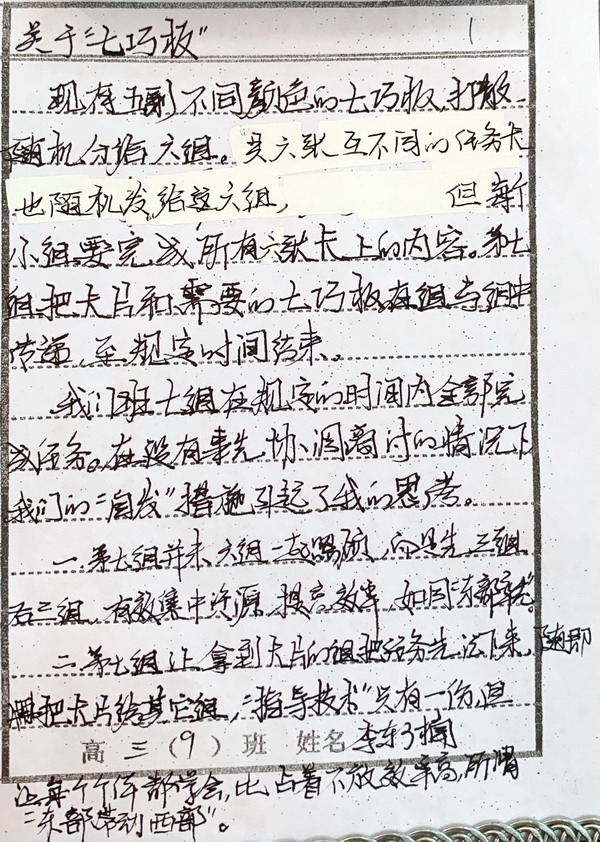 关于“七巧板” 1
现有五副不同颜色的七巧板,打散
随机分给六组。另六张互不同的任务卡
也随机发给这六组, 但每
小组要完成所有六张卡上的内容。第七
组把卡片和需要的七巧板在组与组中
传递,至规定时间结束。
我们班七组在规定的时间内全部完
成任务。在没有事先协调商讨的情况下
我们的“自发”措施引起了我的思考。
一.第七组并未六组一起,而是先三组
后三组,有效集中资源,提高效率,如同“东部”
二.第七组让拿到卡片的组把任务先记下来,随即
把卡片给其它组,“指导技术”只有一份,但
高三(9)班 姓名 李东
让每个个体都学会,比占着不放效率高,所谓
“东部带动西部”。